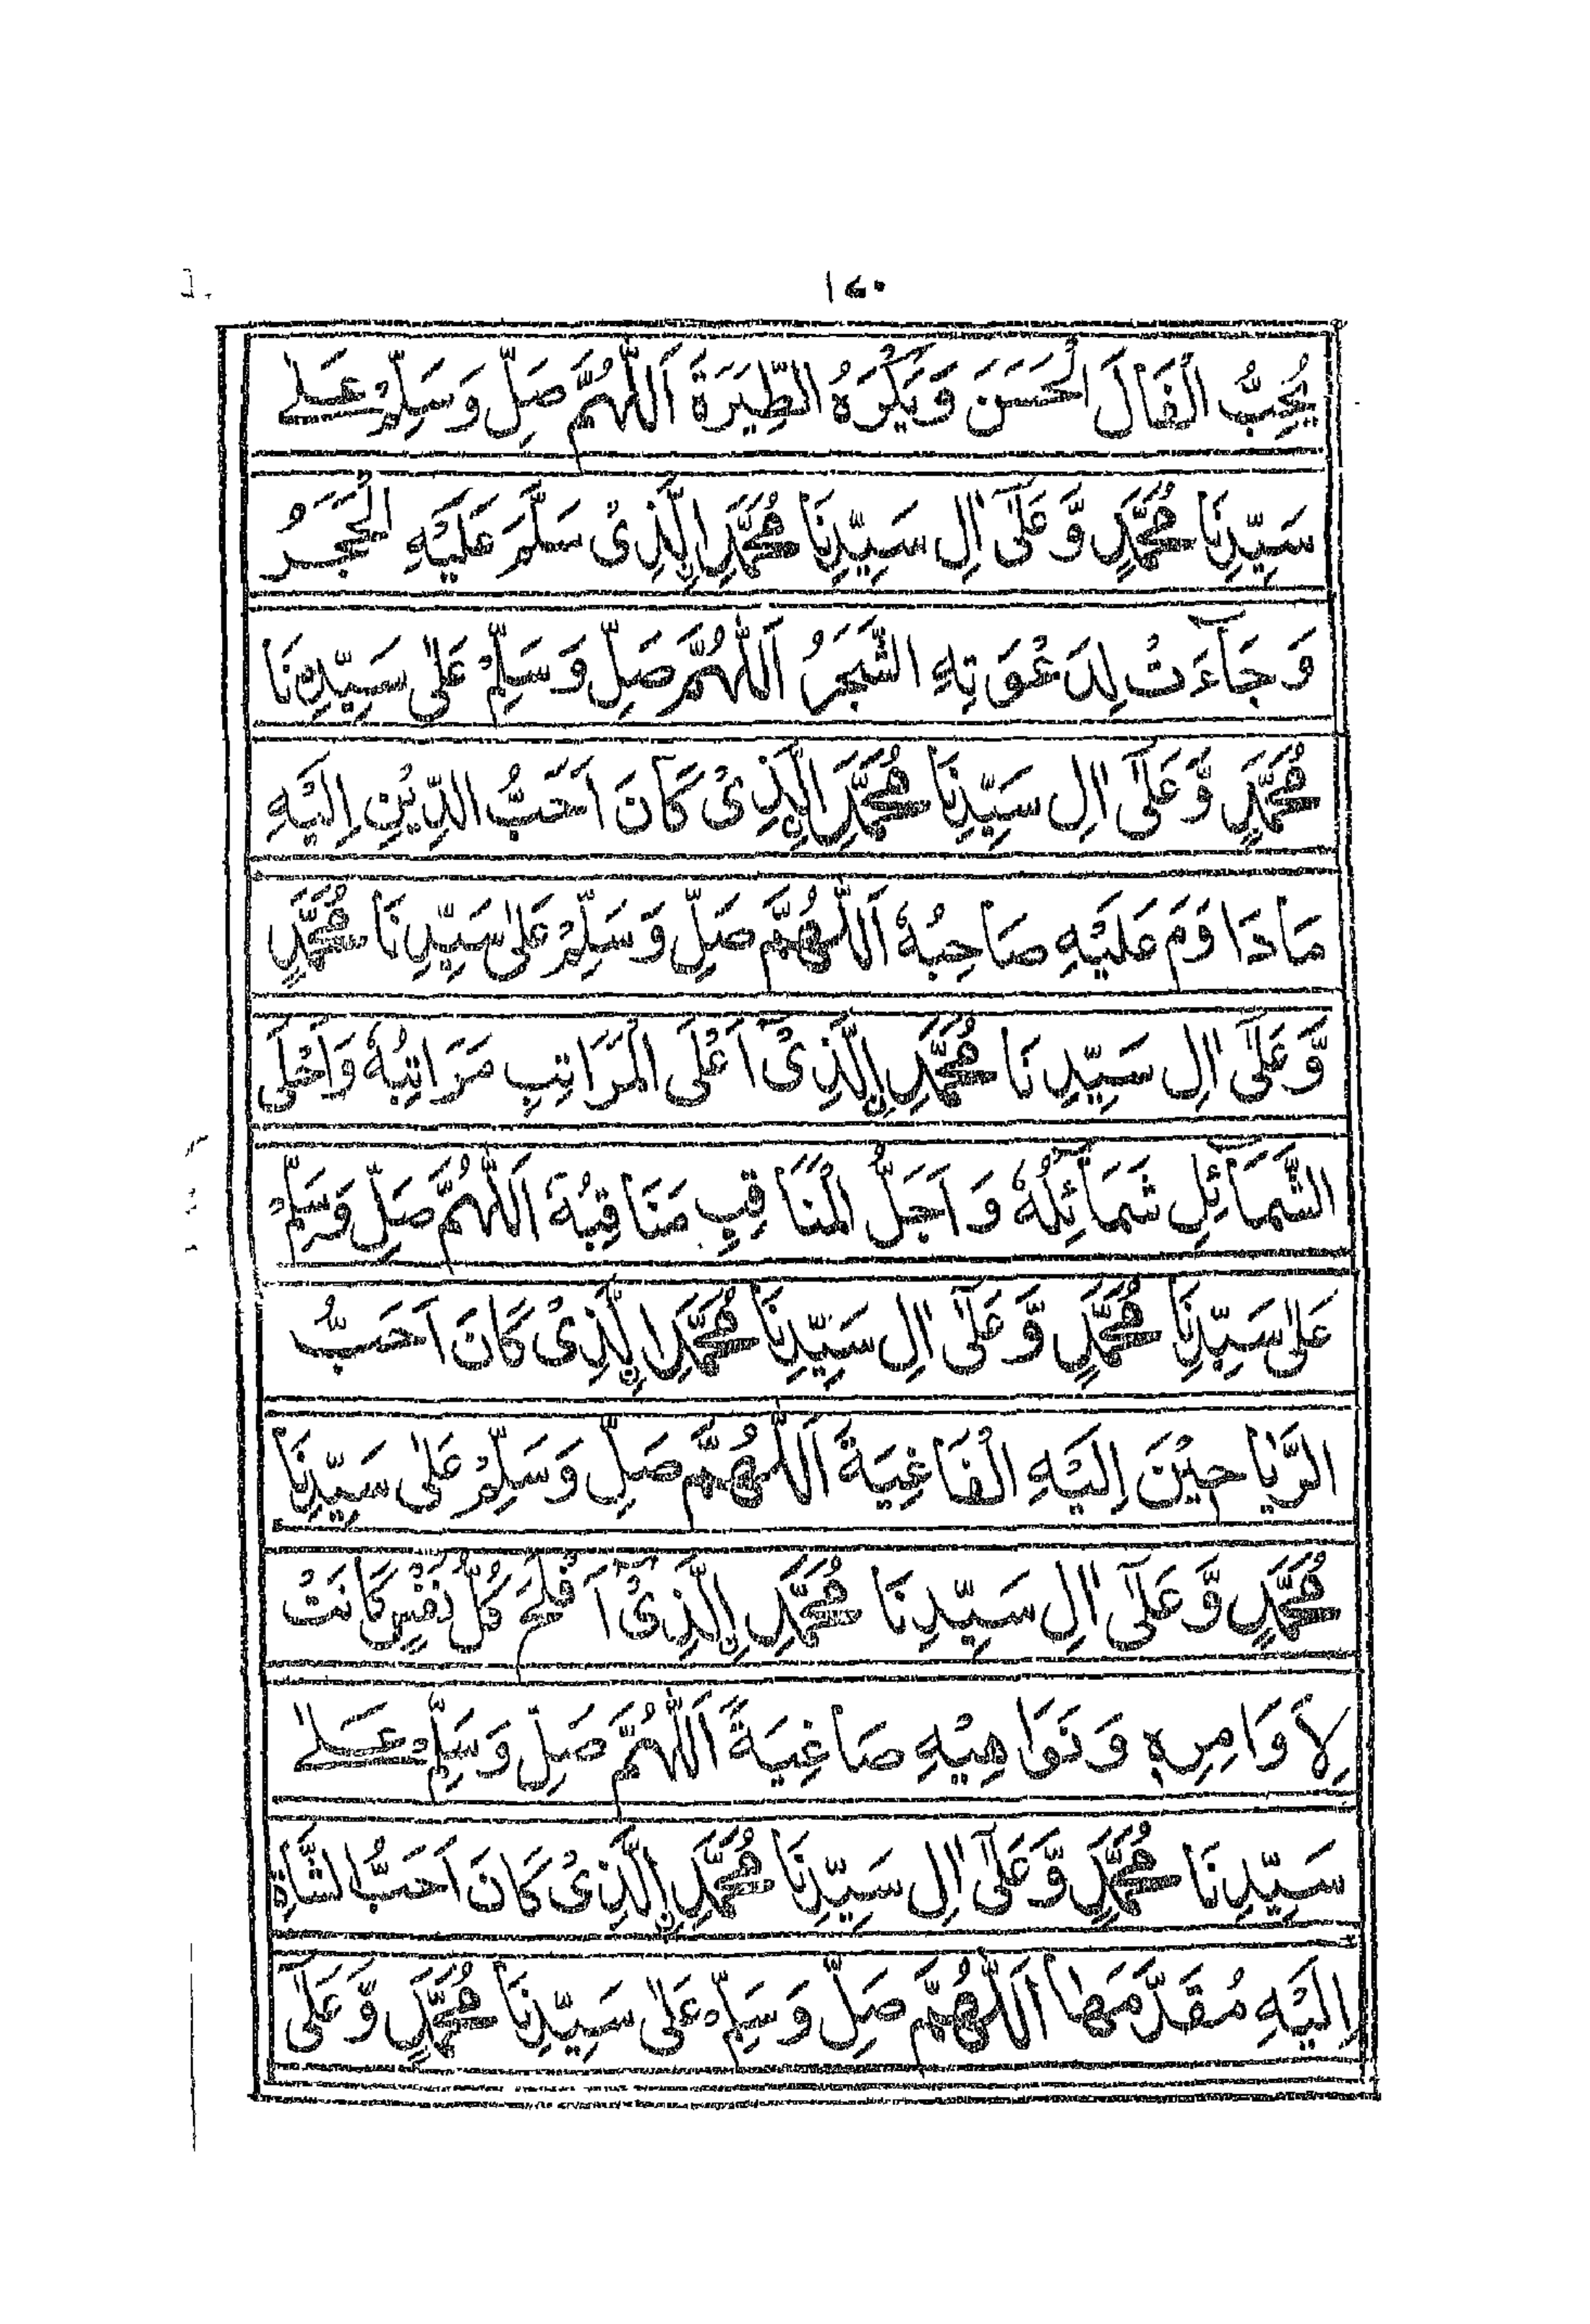 ١٤٠
يُحِبُّ الْفَالَ الْحَسَنَ وَيَكْرَهُ الطِّيَرَةَ اَللّٰهُمَّ صَلِّ وَسَلِّمْ عَلٰے
سَيِّدِنَا مُحَمَّدٍ وَّعَلٰٓى اٰلِ سَيِّدِنَا مُحَمَّدِ اِلَّذِىْ سَلَّمَ عَلَيْهِ الْحَجَرُ
وَجَآءَتْ لِدَعْوَتِهِ الشَّجَرُ اَللّٰهُمَّ صَلِّ وَسَلِّمْ عَلٰى سَيِّدِنَا
مُحَمَّدٍ وَّعَلٰٓى اٰلِ سَيِّدِنَا مُحَمَّدِ الَّذِىْ كَانَ اَحَبُّ الدِّيْنِ اِلَيْهِ
مَادَاوَمَ عَلَيْهِ صَاحِبُهٗ اَللّٰهُمَّ صَلِّ وَسَلِّمْ عَلٰى سَيِّدِنَا مُحَمَّدٍ
وَّعَلٰٓى اٰلِ سَيِّدِنَا مُحَمَّدِ اِلَّذِىْٓ اَعْلَى الْمَرَاتِبِ مَرَاتِبُهٗ وَاَحْلَى
الشَّمَآئِلِ شَمَآئِلُهٗ وَاَجَلُّ الْمَنَاقِبِ مَنَاقِبُهٗ اَللّٰهُمَّ صَلِّ وَسَلِّمْ
عَلٰى سَيِّدِنَا مُحَمَّدٍ وَّعَلٰٓى اٰلِ سَيِّدِنَا مُحَمَّدِ اِلَّذِىْ كَانَ اَحَبُّ
الرَّيَاحِيْنَ اِلَيْهِ الْفَاغِيَةَ اَللّٰهُمَّ صَلِّ وَسَلِّمْ عَلٰى سَيِّدِنَا
مُحَمَّدٍ وَّعَلٰٓى اٰلِ سَيِّدِنَا مُحَمَّدِ اِلَّذِىْٓ اَفْلَحَ كُلُّ نَفْسٍ كَانَتْ
لِاَوَامِرِهٖ وَنَوَاهِيْهِ صَاغِيَةً اَللّٰهُمَّ صَلِّ وَسَلِّمْ عَلٰے
سَيِّدِنَا مُحَمَّدٍ وَّعَلٰٓى اٰلِ سَيِّدِنَا مُحَمَّدِ اِلَّذِىْ كَانَ اَحَبُّ الشَّاةِ
اِلَيْهِ مُقَدَّمَهَا اَللّٰهُمَّ صَلِّ وَسَلِّمْ عَلٰى سَيِّدِنَا مُحَمَّدٍ وَّعَلٰٓى